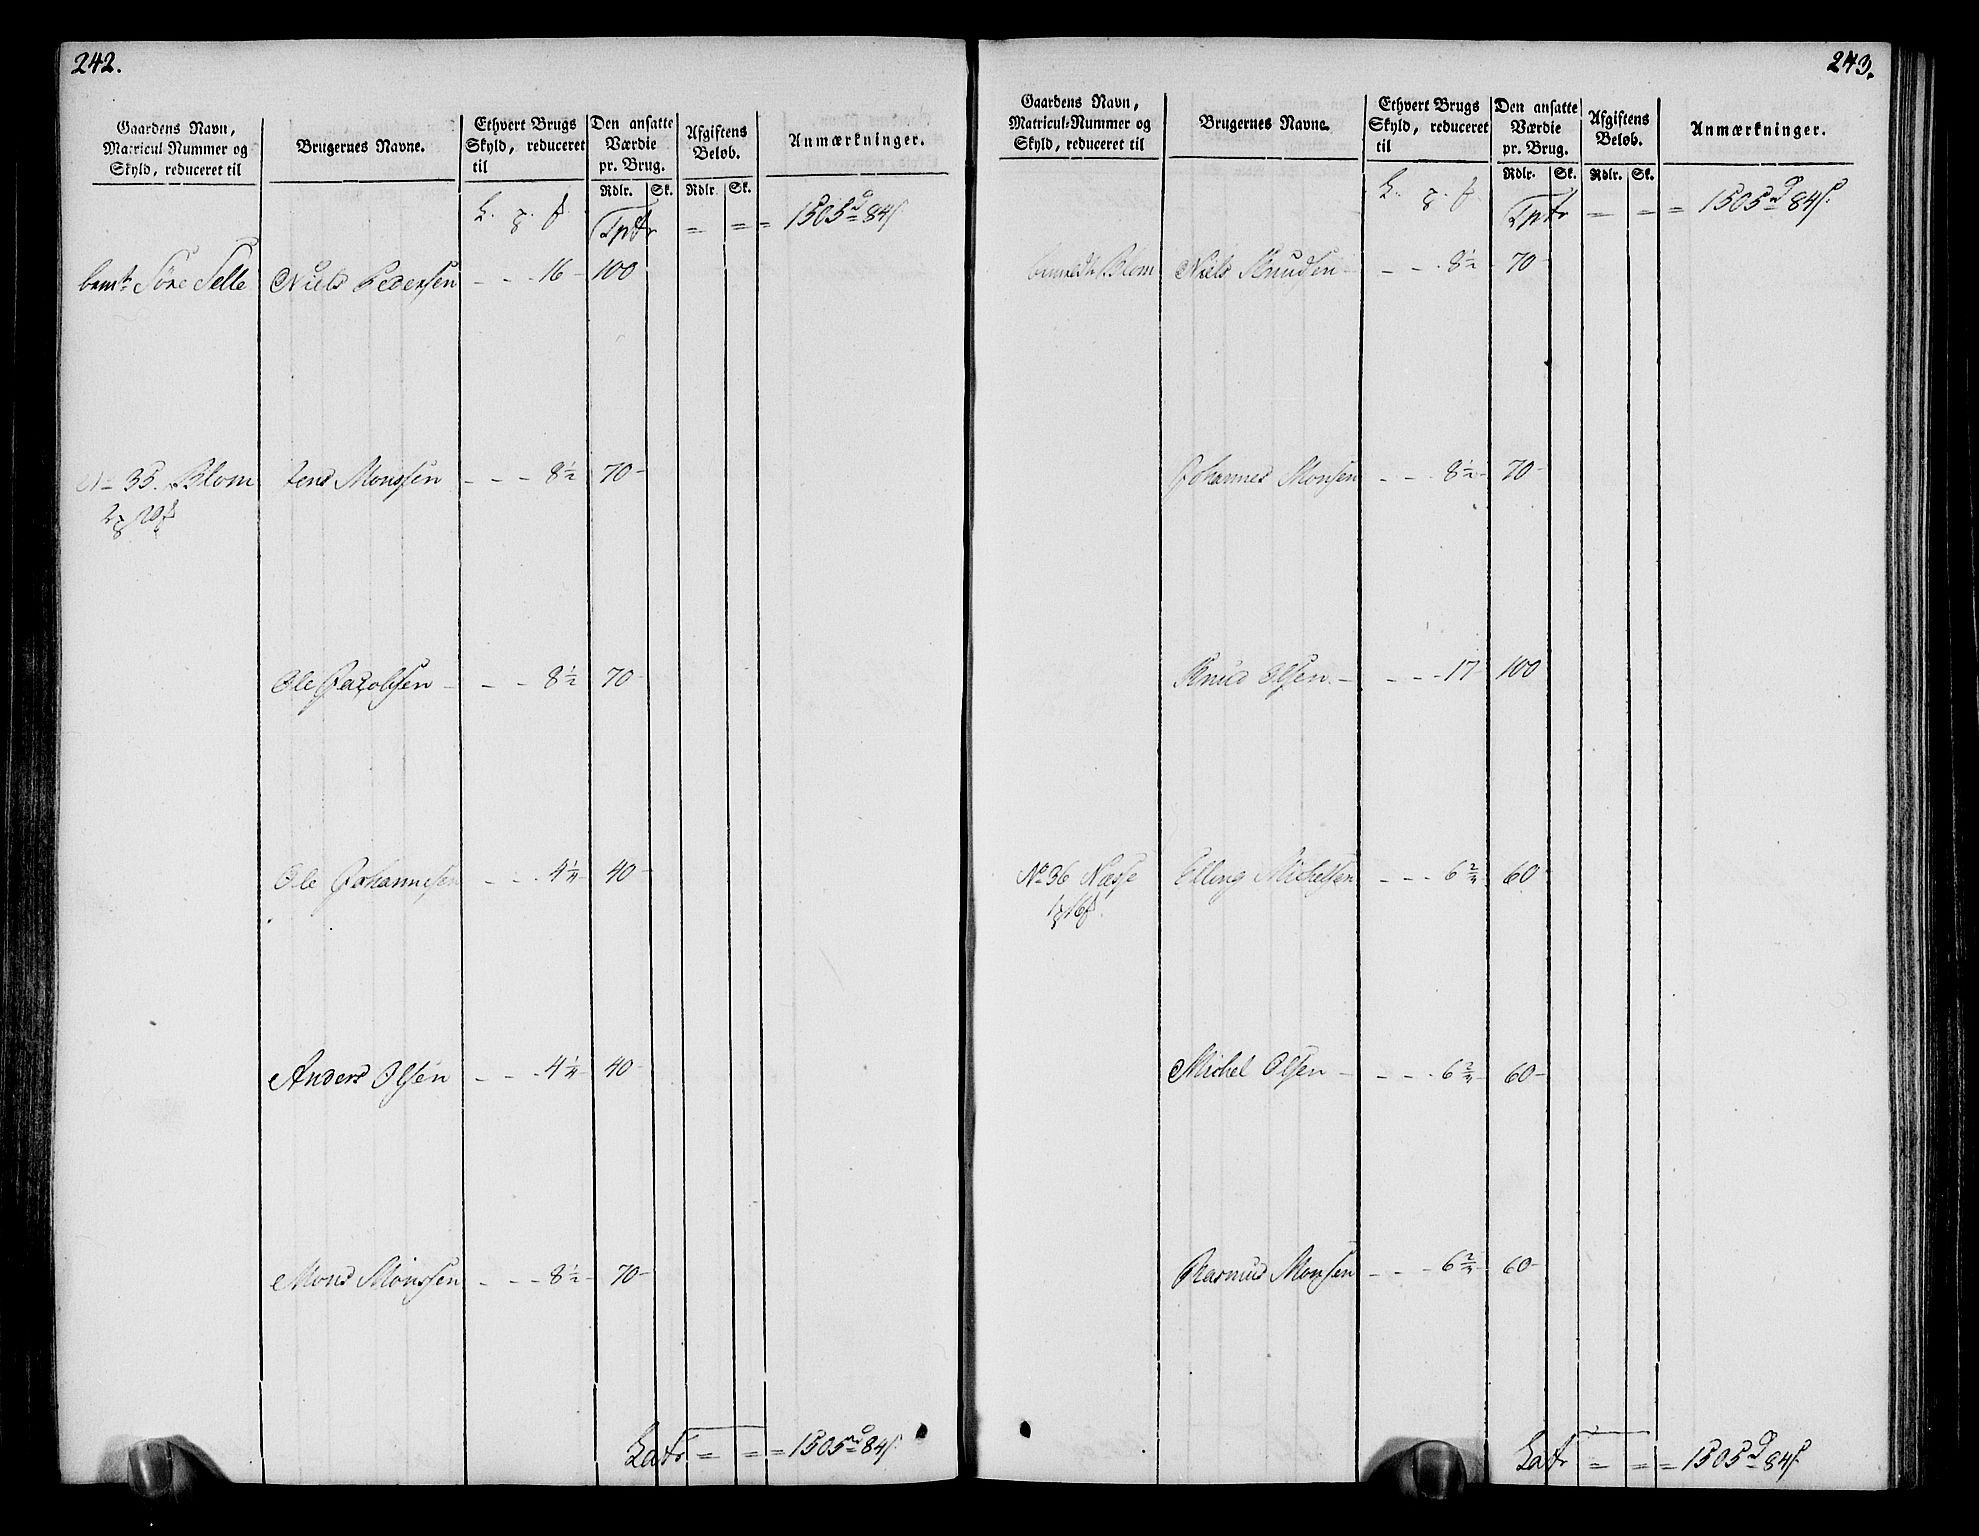 242.
Gaardens Navn, Matricul-Nummer og Skyld, reduceret til
Brugernes Navne.
Ethvert Brugs Skyld, reduceret til
Den ansatte Værdie pr. Brug.
Afgiftens Beløb.
Anmærkninger.
Rdlr. Sk. Rdlr. Sk.
Tptr = = = 1505 84
Töre Felle Niels Pedersen - - - 16 - 100
No 35. Blom Jens Monssen - - - 8 1/2 70 -
Ole Jacobsen - - - 8 1/2 70 -
Ole Johannesen - - - 4 1/4 40 -
Anders Olsen - - - 4 1/4 40 -
Mons Monssen - - - 8 1/2 70 -
Latr = = = 1505 84
243.
Gaardens Navn, Matricul-Nummer og Skyld, reduceret til
Brugernes Navne.
Ethvert Brugs Skyld, reduceret til
Den ansatte Værdie pr. Brug.
Afgiftens Beløb.
Anmærkninger.
Rdlr. Sk. Rdlr. Sk.
Tptr = = = 1505 84
Blom Niels Knudsen - - - 8 1/2 - 70 -
Johannes Monsen - - - 8 1/2 - 70 -
Knud Olsen - - - - 17 - 100
No 36 Næsse Elling Michelsen - - - 6 2/4 60 -
Michel Olsen - - - - 6 2/4 60 -
Rasmus Monsen - - - 6 2/4 60 -
Latr = = = 1505 84